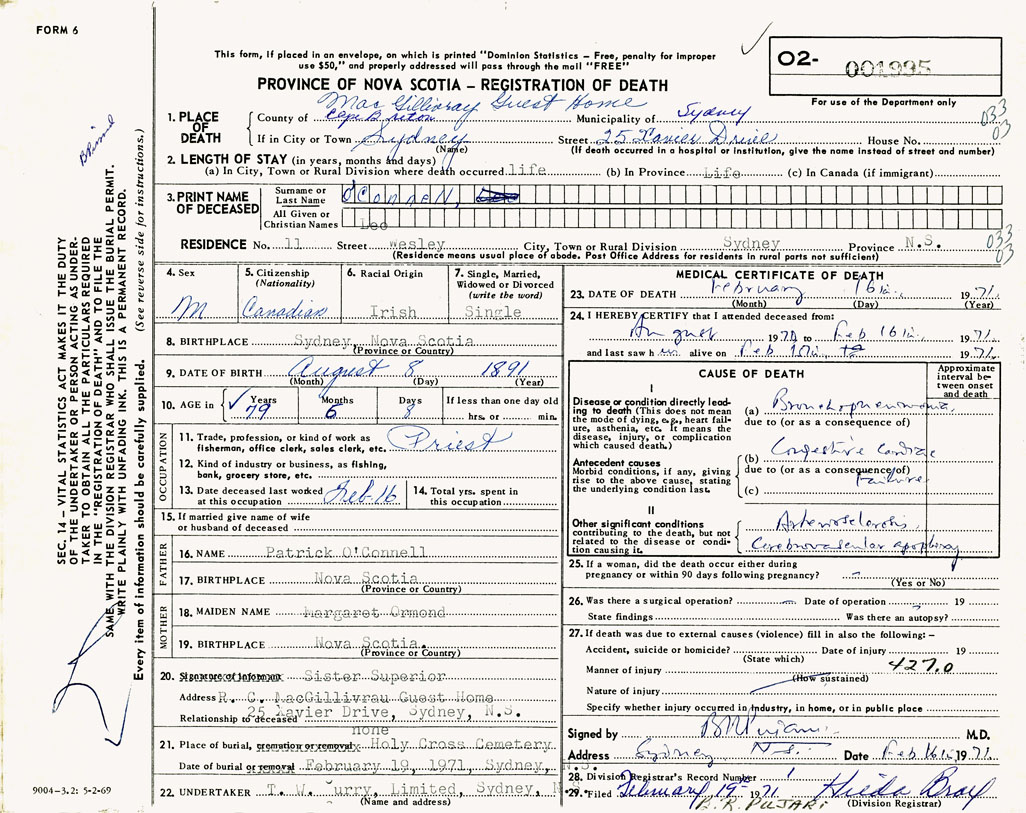 FORM 6
This form, if placed in an envelope, on which is printed "Dominion Statistics – Free, penalty for improper
use $50," and properly addressed will pass through the mail "FREE"
02- 001995
For use of the Department only
PROVINCE OF NOVA SCOTIA – REGISTRATION OF DEATH
MacGillivray Guest Home
1. PLACE OF DEATH
County of Cape Breton Municipality of Sydney 033
If in City or Town Sydney Street 25 Xavier Drive House No. 03
(Name) (If death occurred in a hospital or institution, give the name instead of street and number)
2. LENGTH OF STAY (in years, months and days)
(a) In City, Town or Rural Division where death occurred life (b) In Province Life (c) In Canada (if immigrant)
3. PRINT NAME OF DECEASED
Surname or Last Name O'Connell,
All Given or Christian Names Leo
RESIDENCE No. 11 Street Wesley City, Town or Rural Division Sydney Province N.S. 033 03
(Residence means usual place of abode. Post Office Address for residents in rural parts not sufficient)
4. Sex M
5. Citizenship (Nationality) Canadian
6. Racial Origin Irish
7. Single, Married, Widowed or Divorced (write the word) Single
8. BIRTHPLACE Sydney, Nova Scotia
(Province or Country)
9. DATE OF BIRTH August 8 1891
(Month) (Day) (Year)
10. AGE in Years 79 Months 6 Days 8 If less than one day old
hrs. or min.
OCCUPATION
11. Trade, profession, or kind of work as
fisherman, office clerk, sales clerk, etc. Priest
12. Kind of industry or business, as fishing,
bank, grocery store, etc.
13. Date deceased last worked at this occupation Feb-16
14. Total yrs. spent in this occupation
15. If married give name of wife
or husband of deceased
FATHER
16. NAME Patrick O'Connell
17. BIRTHPLACE Nova Scotia
(Province or Country)
MOTHER
18. MAIDEN NAME Margaret Ormond
19. BIRTHPLACE Nova Scotia.
(Province or Country)
20. Signature of informant Sister Superior
Address R. C. MacGillivrau Guest Home
25 Xavier Drive, Sydney, N.S.
Relationship to deceased
none
21. Place of burial, cremation or removal Holy Cross Cemetery
Date of burial or removal February 19, 1971, Sydney, N.S.
22. UNDERTAKER T. W. urry, Limited, Sydney, N
(Name and address)
MEDICAL CERTIFICATE OF DEATH
23. DATE OF DEATH February 16th, 1971.
(Month) (Day) (Year)
24. I HEREBY CERTIFY that I attended deceased from:
August 1970 to Feb 16th, 1971.
and last saw h im alive on Feb 1971.
CAUSE OF DEATH
Approximate interval between onset and death
I
Disease or condition directly leading to death (This does not mean the mode of dying, e.g., heart failure, asthenia, etc. It means the disease, injury, or complication which caused death.)
(a) Bronchopneumonia,
due to (or as a consequence of)
Antecedent causes
Morbid conditions, if any, giving rise to the above cause, stating the underlying condition last.
(b) Congestive Cardiac
due to (or as a consequence of) Failure
(c)
II
Other significant conditions contributing to the death, but not related to the disease or condition causing it.
Arteriosclerosis,
Cerebrovascular apoplexy
25. If a woman, did the death occur either during
pregnancy or within 90 days following pregnancy?
(Yes or No)
26. Was there a surgical operation? Date of operation 19
State findings Was there an autopsy?
27. If death was due to external causes (violence) fill in also the following:–
Accident, suicide or homicide? Date of injury 19
(State which)
Manner of injury 427.0
(How sustained)
Nature of injury
Specify whether injury occurred in industry, in home, or in public place
Signed by M.D.
Address Sydney N.S. Date Feb 16th, 1971.
28. Division Registrar's Record Number 1
29. Filed February 19th 1971 Hilda Bray
B. R. PUJARI (Division Registrar)
SEC. 14 – VITAL STATISTICS ACT MAKES IT THE DUTY
OF THE UNDERTAKER OR PERSON ACTING AS UNDER-
TAKER TO OBTAIN ALL THE PARTICULARS REQUIRED
IN THE "REGISTRATION OF DEATH" AND TO FILE THE
SAME WITH THE DIVISION REGISTRAR WHO SHALL ISSUE THE BURIAL PERMIT.
WRITE PLAINLY WITH UNFADING INK. THIS IS A PERMANENT RECORD.
Every item of information should be carefully supplied. (See reverse side for instructions.)
9004-3.2: 5-2-69